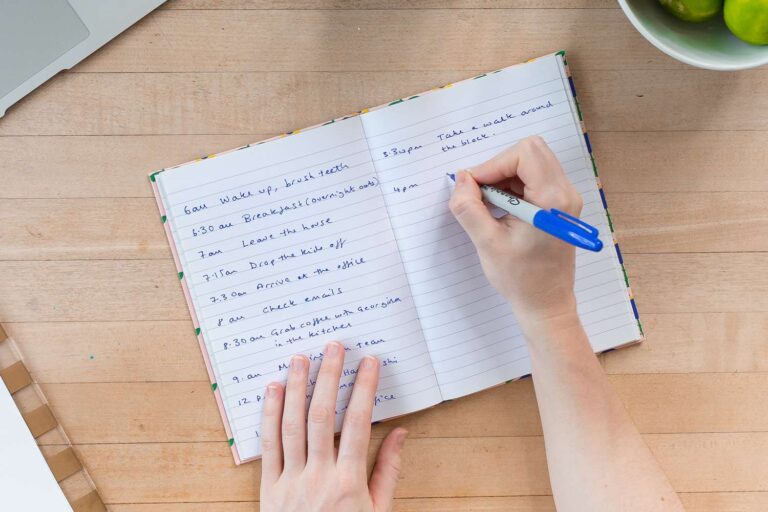 6am Wake up, brush teeth
6.30am Breakfast (overnight oats)
7am Leave the house
7.15am Drop the kids off
7.30am Arrive at the office
8am Check emails
8.30am Grab coffee with Georgina
in the kitchen
9.am team
12.
3.30pm Take a walk around
the block.
4pm